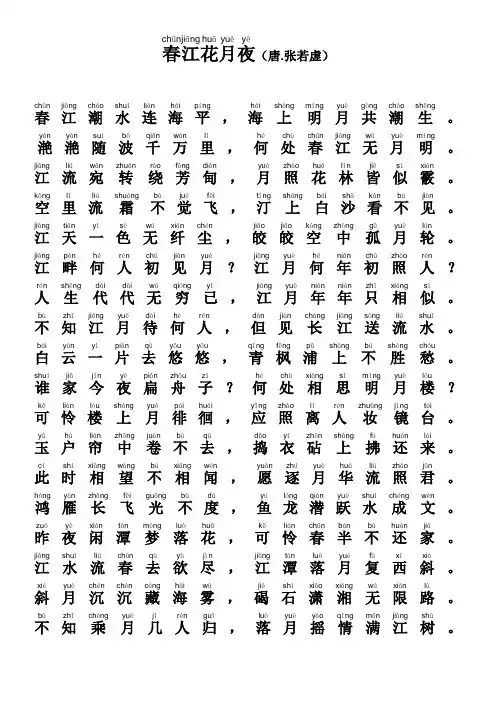 chūnjiāng huā yuè yè
春江花月夜（唐.张若虚）
chūn jiāng cháo shuǐ lián hǎi píng hǎi shàng míng yuè gòng cháo shēng
春江潮水连海平，海上明月共潮生。
yàn yàn suí bō qiān wàn lǐ hé chù chūn jiāng wú yuè míng
滟滟随波千万里，何处春江无月明。
jiāng liú wǎn zhuǎn rào fāng diàn yuè zhào huā lín jiē sì xiàn
江流宛转绕芳甸，月照花林皆似霰。
kōng lǐ liú shuāng bù jué fēi tīng shàng bái shā kàn bú jiàn
空里流霜不觉飞，汀上白沙看不见。
jiāng tiān yí sè wú xiān chén jiǎo jiǎo kōng zhōng gū yuè lún
江天一色无纤尘，皎皎空中孤月轮。
jiāng pàn hé rén chū jiàn yuè jiāng yuè hé nián chū zhào rén
江畔何人初见月？江月何年初照人？
rén shēng dài dài wú qióng yǐ jiāng yuè nián nián zhǐ xiāng sì
人生代代无穷己，江月年年只相似。
bù zhī jiāng yuè dài hé rén dàn jiàn cháng jiāng sòng liú shuǐ
不知江月待何人，但见长江送流水。
bái yún yí piàn qù yōu yōu qīng fēng pǔ shàng bú shèng chóu
白云一片去悠悠，青枫浦上不胜愁。
shuí jiā jīn yè piān zhōu zǐ hé chù xiāng sī míng yuè lóu
谁家今夜扁舟子？何处相思明月楼？
kě lián lóu shàng yuè pái huái yīng zhào lí rén zhuāng jìng tái
可怜楼上月徘徊，应照离人妆镜台。
yù hù lián zhōng juǎn bú qù dǎo yī zhēn shàng fú huán lái
玉户帘中卷不去，捣衣砧上拂还来。
cǐ shí xiāng wàng bù xiāng wén yuàn zhú yuè huá liú zhào jūn
此时相望不相闻，愿逐月华流照君。
hóng yàn cháng fēi guāng bú dù yú lóng qián yuè shuǐ chéng wén
鸿雁长飞光不度，鱼龙潜跃水成文。
zuó yè xián tán mèng luò huā kě lián chūn bàn bù huán jiā
昨夜闲潭梦落花，可怜春半不还家。
jiāng shuǐ liú chūn qù yù jìn jiāng tán luò yuè fù xī xié
江水流春去欲尽，江潭落月复西斜。
xié yuè chén chén cáng hǎi wù jié shí xiāo xiāng wú xiàn lù
斜月沉沉藏海雾，碣石潇湘无限路。
bù zhī chéng yuè jǐ rén guī luò yuè yáo qíng mǎn jiāng shù
不知乘月几人归，落月摇情满江树。